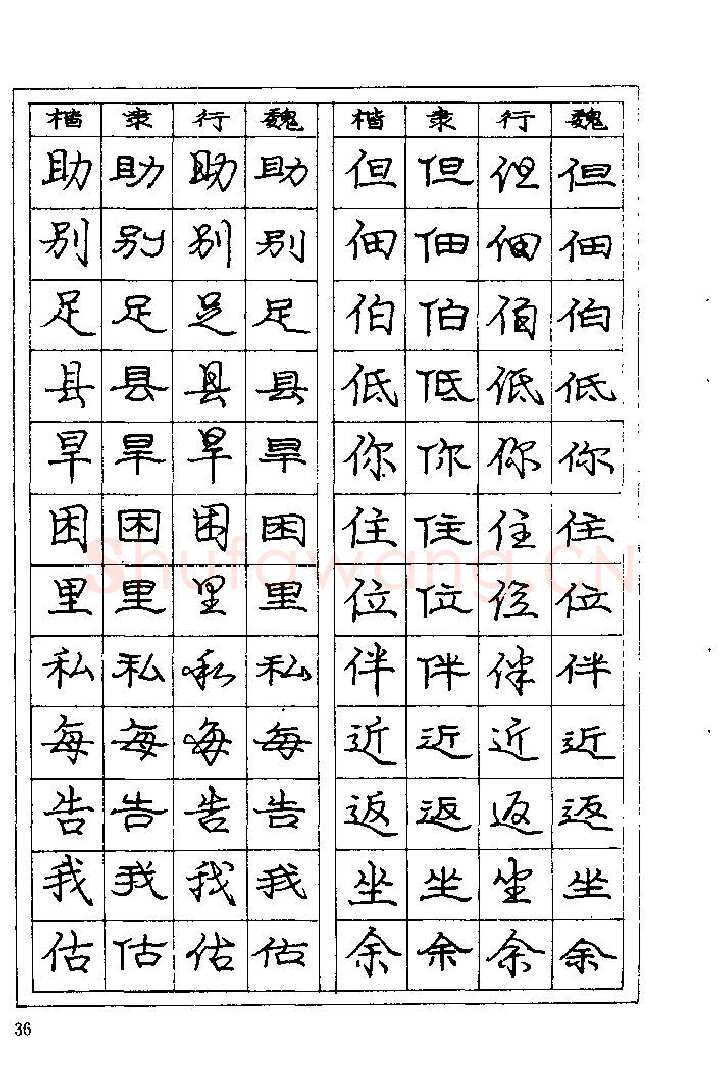 楷 隶 行 魏 楷 隶 行 魏
助 助 助 助 但 但 但 但
别 别 别 别 佃 佃 佃 佃
足 足 足 足 伯 伯 伯 伯
县 县 县 县 低 低 低 低
旱 旱 旱 旱 你 你 你 你
困 困 困 困 住 住 住 住
Shufawang.CN
里 里 里 里 位 位 位 位
私 私 私 私 伴 伴 伴 伴
每 每 每 每 近 近 近 近
告 告 告 告 返 返 返 返
我 我 我 我 坐 坐 坐 坐
估 估 估 估 余 余 余 余
36